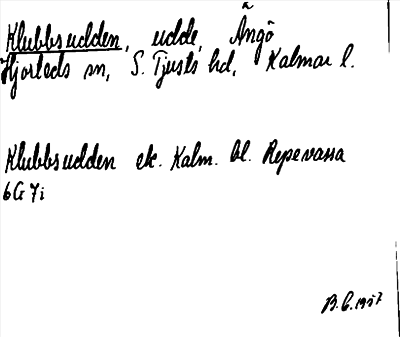 Klubbsudden, udde, Ängö
Hjorteds sn, S. Tjusts hd, Kalmar l.
Klubbsudden ek. Kalm. bl. Repevassa
6G 7i
B.C. 1957